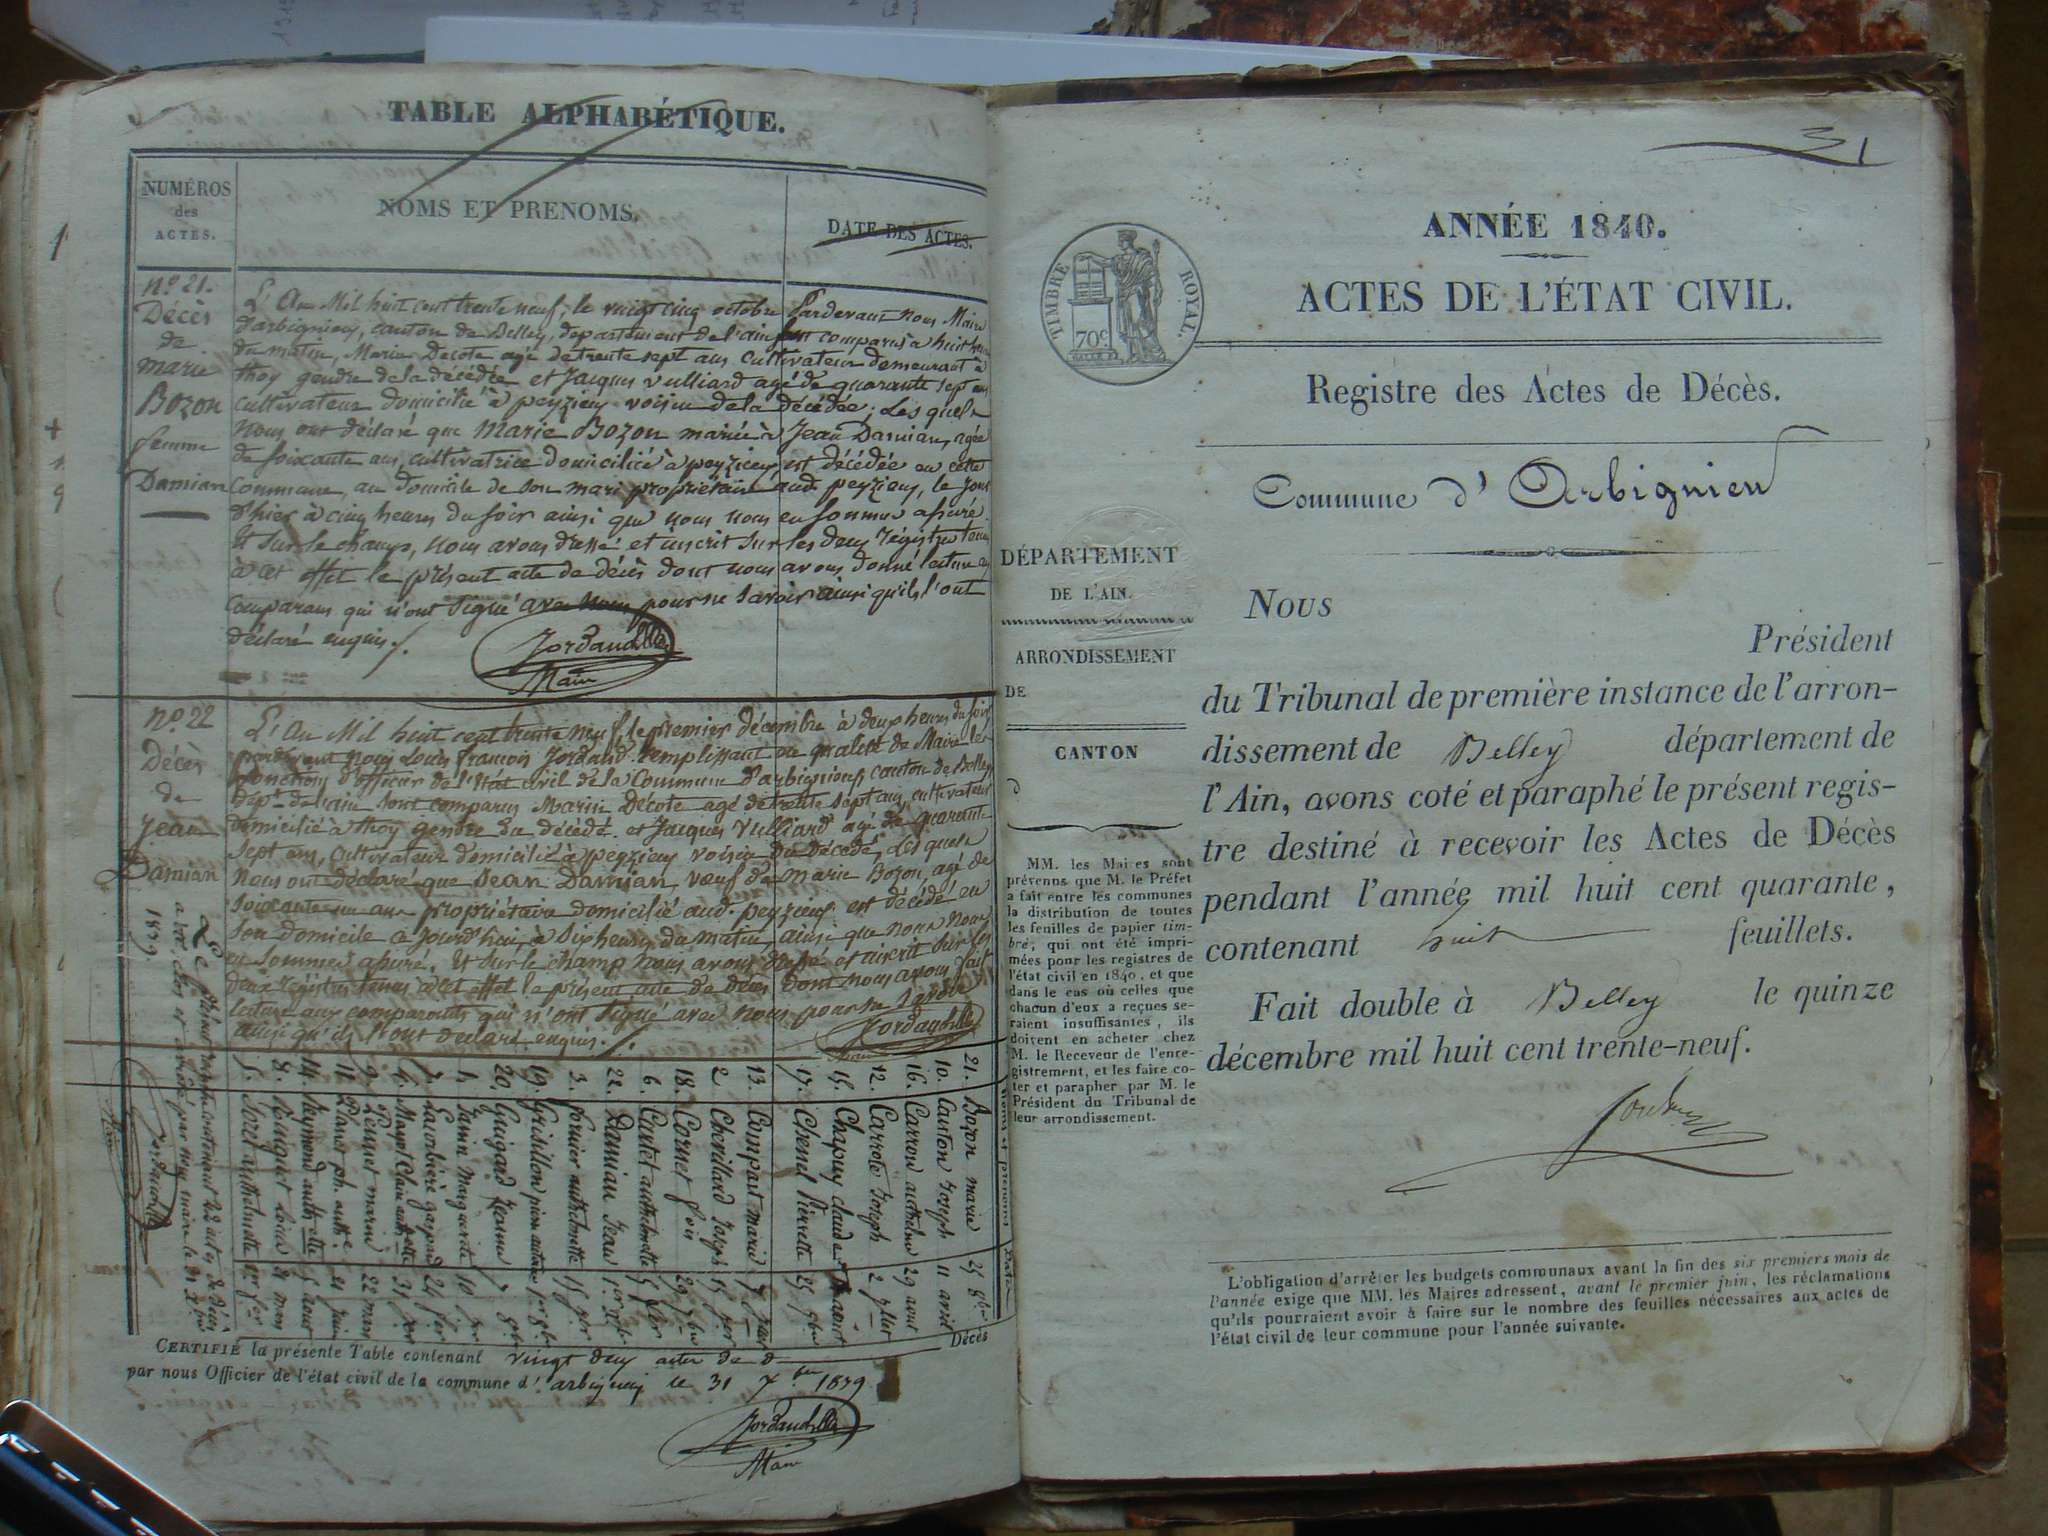 TABLE ALPHABÉTIQUE.
NUMÉROS
des
ACTES.
NOMS ET PRENOMS.
DATE DES ACTES.
nº 21.
Décès
de
marie
Bozon
femme
Damian
L'An Mil huit cent trente neuf, le vingt cinq octobre Pardevant nous Maire
d'arbignieu, canton de Belley, departement de l'ain sont comparus à huit heures
du matin, Marin Decote agé de trente sept ans cultivateur demeurant à
thoy gendre de la décédée et Jacques vulliard agé de quarante sept ans
cultivateur domicilié à peyzieu voisin de la décédée; Les quels
nous ont déclaré que Marie Bozon mariée à Jean Damian, agée
de soixante ans, cultivatrice domiciliée à peyzieu est décédée en cette
Commune, au domicile de son mari propriétaire aud. peyzieu, le jour
d'hier à cinq heures du soir ainsi que nous nous en sommes assuré
Et sur le champ, nous avons dressé et inscrit sur les deux régistres tenus
à cet effet le présent acte de décès dont nous avons donné lecture aux
comparans qui n'ont signé avec nous pour ne savoir ainsi qu'ils l'ont
déclaré enquis./.
Maire
nº 22
Décès
de
Jean
Damian
L'An Mil huit cent trente neuf, le premier décembre à deux heures du soir
pardevant nous Louis françois Jordand remplissant en qualité de Maire les
fonctions d'officier de l'état civil de la Commune d'arbignieu canton de Belley
dépt. de l'ain sont comparus Marin Décote agé de trente sept ans, cultivateur
domicilié à thoy gendre du décédé et Jacques Vulliard agé de quarante
sept ans, cultivateur domicilié à peyzieu voisin du décédé, Les quels
Nous ont déclaré que Jean Damian, veuf de marie Bozon, agé de
soixante un ans propriétaire domicilié aud. peyzieu est décédé en
son domicile ce jourd'hui, à six heures du matin, ainsi que nous nous
en sommes assuré. Et sur le champ nous avons dressé et inscrit sur les
deux régistres tenus à cet effet le présent acte de décès dont nous avons fait
lecture aux comparants qui n'ont signé avec nous pour ne savoir
ainsi qu'ils l'ont déclaré enquis./.
Le présent registre contenant 22 actes de décès
a été clos et arrêté par nous maire le 31 Xbre
1839.
Noms et prénoms Dates
21. Bozon marie 25 8bre
10. Canton Joseph 11 avril
16. Carron 29 aout
12. Carrote Joseph 2
15. Chapuy claude août
17. Chenel Pierrette 25
13. Compart marie 7
2 Chevillard Joseph 15
18. Cornet 29
6. Curtet anthelmette 5
22. Damian Jean 1er
3. anthelmette 15
19. Grisillon pierre antoine 1er
20. Guigad Jeanne 7
1. Jamin Marguerite 10
7. Lavorbière gaspard 24
4. Mayot Clair 31
9. Peysset marie 22 mars
11. 21 juin
14. Reymond 5 aout
8. Rouquet Louis 21 mars
5. Sorel anthelmette 1er
CERTIFIÉ la présente Table contenant vingt deux actes de d Décès
par nous Officier de l'état civil de la commune d'. arbignieu le 31 Xbre 1839
Maire
31
TIMBRE ROYAL.
70c
ANNÉE 1840.
ACTES DE L'ÉTAT CIVIL.
Registre des Actes de Décès.
Commune d'Arbignieu
DÉPARTEMENT
DE L'AIN.
ARRONDISSEMENT
DE
CANTON
d
MM. les Maires sont
prévenus que M. le Préfet
a fait entre les communes
la distribution de toutes
les feuilles de papier tim-
bré, qui ont été impri-
mées pour les registres de
l'état civil en 1840, et que
dans le cas où celles que
chacun d'eux a reçues se-
raient insuffisantes, ils
doivent en acheter chez
M. le Receveur de l'enre-
gistrement, et les faire co-
ter et parapher par M. le
Président du Tribunal de
leur arrondissement.
Nous
Président
du Tribunal de première instance de l'arron-
dissement de Belley département de
l'Ain, avons coté et paraphé le présent regis-
tre destiné à recevoir les Actes de Décès
pendant l'année mil huit cent quarante,
contenant huit feuillets.
Fait double à Belley le quinze
décembre mil huit cent trente-neuf.
L'obligation d'arrêter les budgets communaux avant la fin des six premiers mois de
l'année exige que MM. les Maires adressent, avant le premier juin, les réclamations
qu'ils pourraient avoir à faire sur le nombre des feuilles nécessaires aux actes de
l'état civil de leur commune pour l'année suivante.